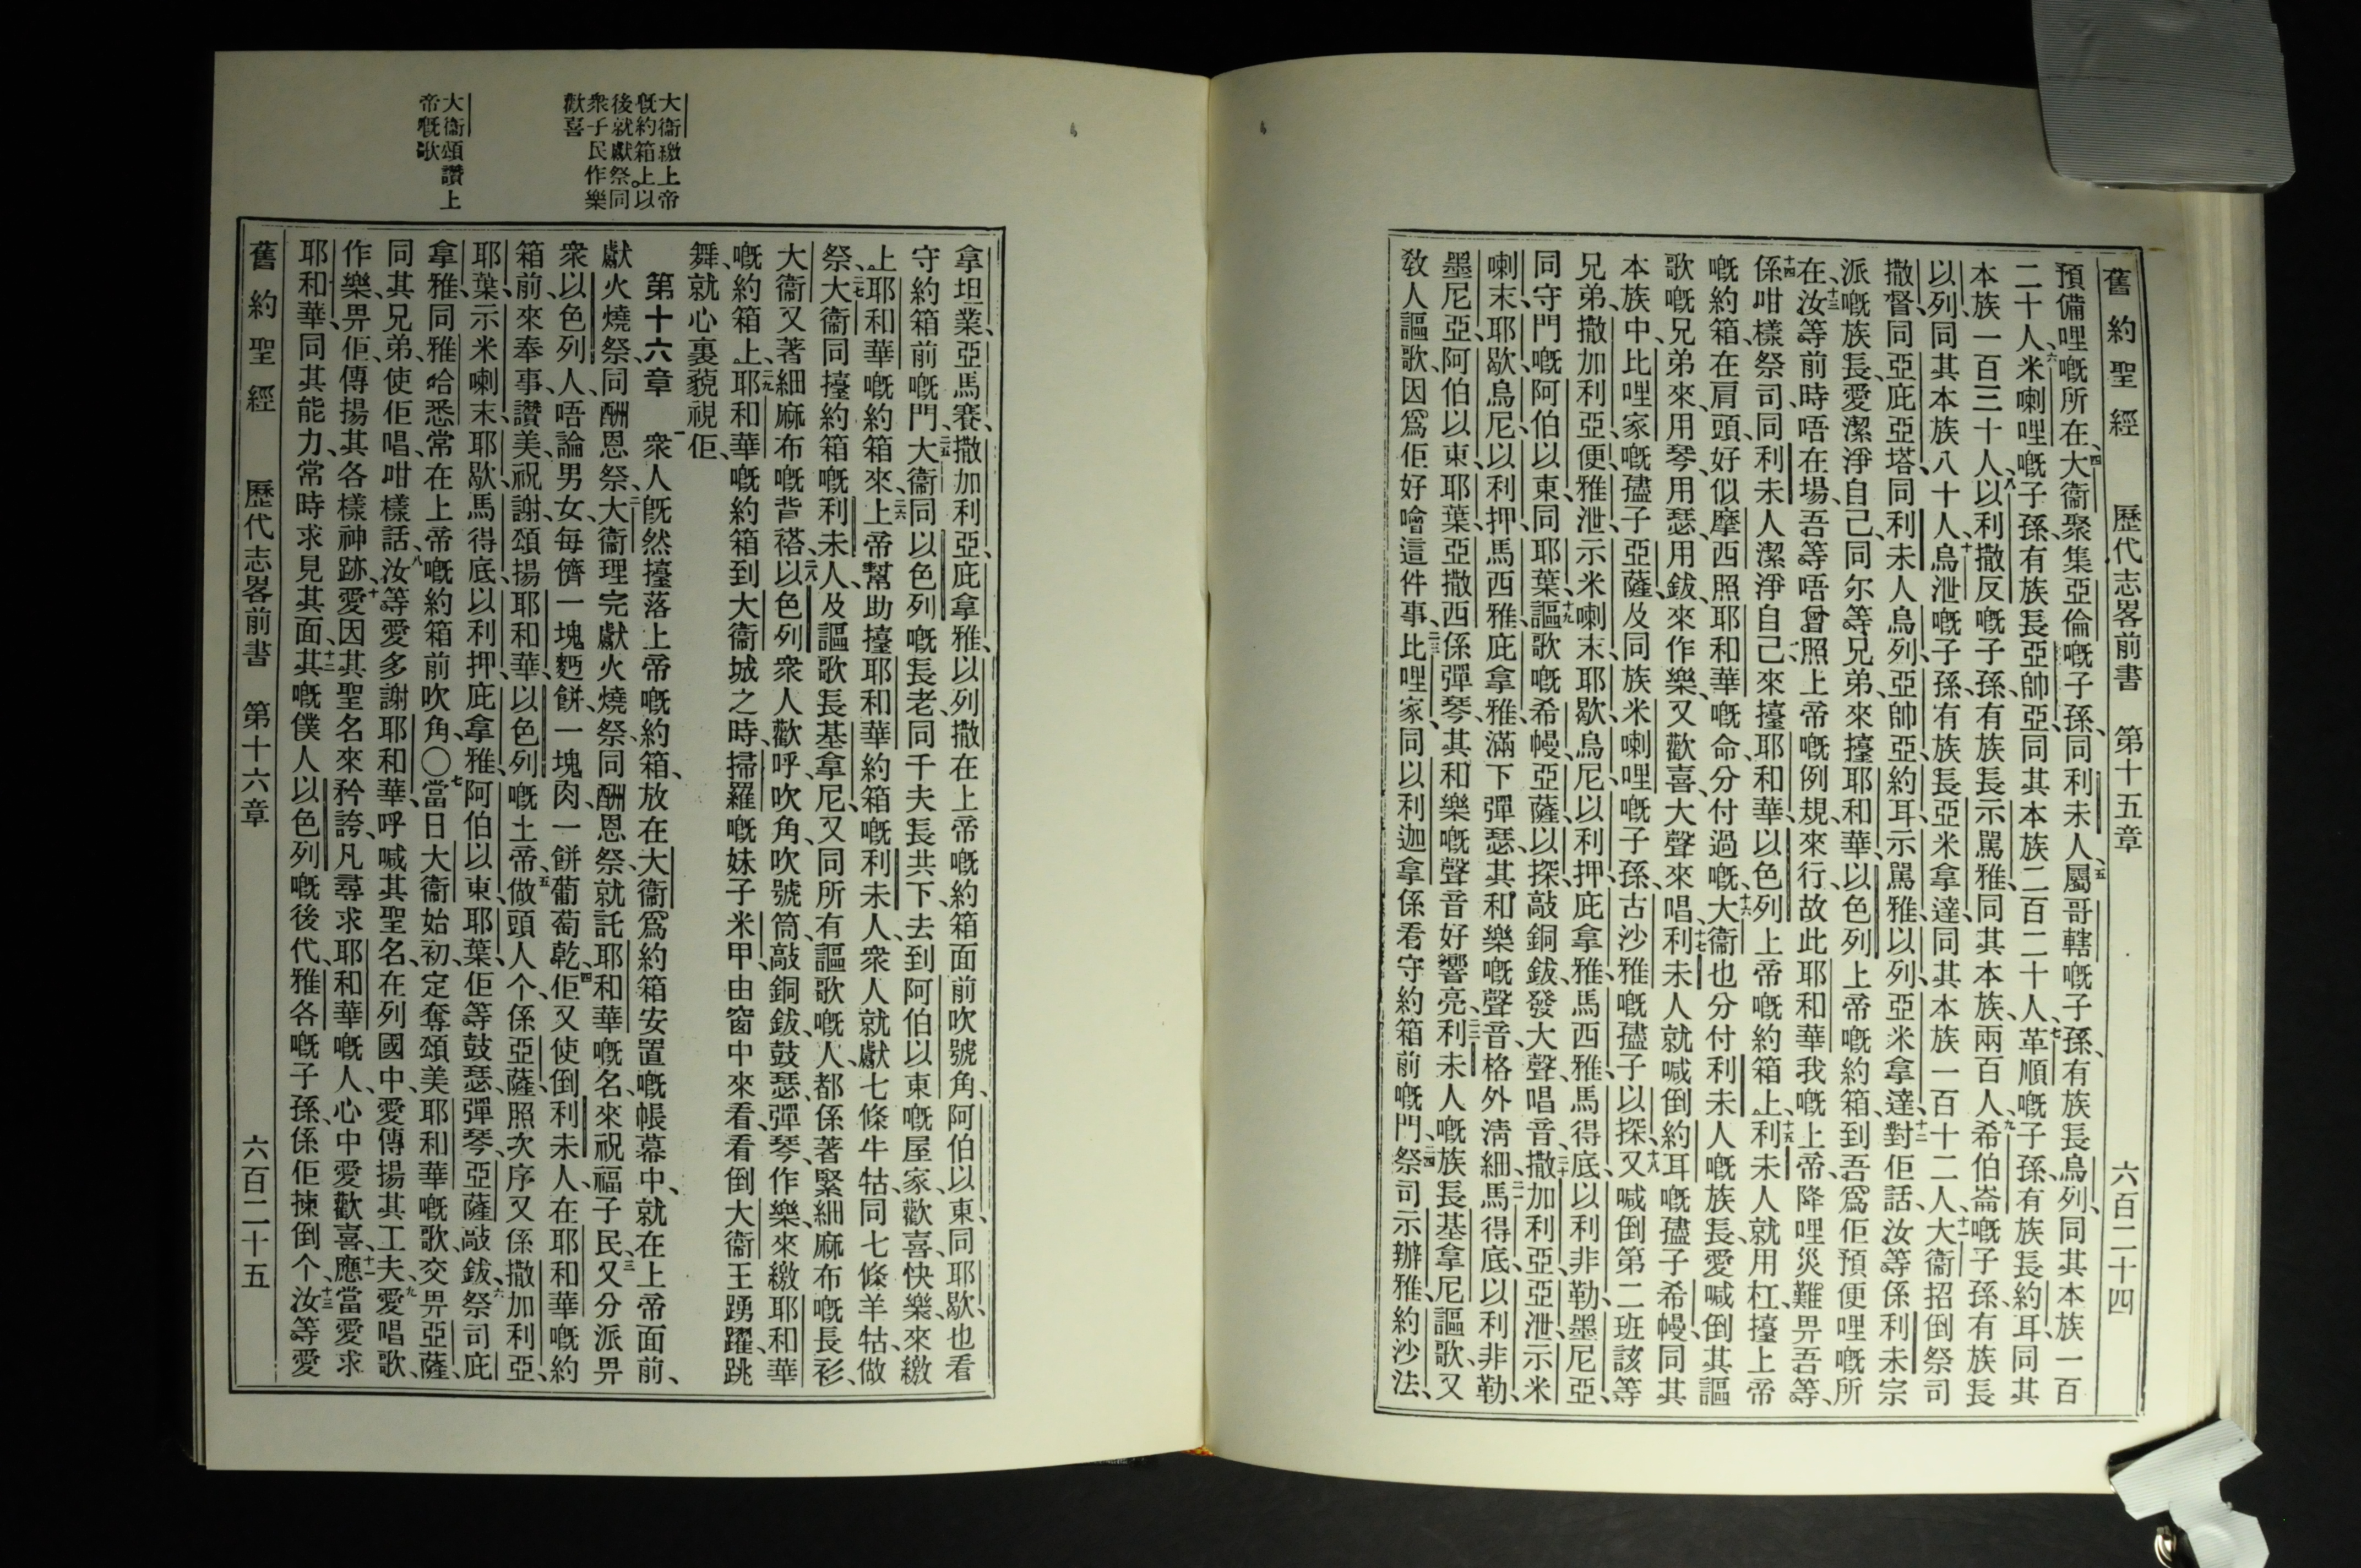 舊約聖經　歷代志畧前書　第十五章　六百二十四
預備哩嘅所在、四大衞聚集亞倫嘅子孫、同利未人、五屬哥轄嘅子孫、有族長烏列、同其本族一百
二十人、六米喇哩嘅子孫、有族長亞帥亞、同其本族二百二十人、七革順嘅子孫、有族長約耳、同其
本族一百三十人、八以利撒反嘅子孫、有族長示罵雅、同其本族、兩百人、九希伯崙嘅子孫、有族長
以列、同其本族八十人、十烏泄嘅子孫、有族長亞米拿達、同其本族一百十二人、十一大衞招倒祭司
撒督、同亞庇亞塔、同利未人烏列、亞帥亞、約耳、示罵雅、以列、亞米拿達、十二對佢話、汝等係利未宗
派嘅族長、愛潔淨自己、同尔等兄弟、來擡耶和華、以色列上帝嘅約箱、到吾爲佢預便哩嘅所
在、十三汝等前時唔在場、吾等唔曾照上帝嘅例規、來行、故此耶和華我嘅上帝、降哩災難畀吾等、
十四係咁樣祭司、同利未人潔淨自己、來擡耶和華、以色列上帝嘅約箱、十五利未人就用杠、擡上帝
嘅約箱、在肩頭、好似摩西照耶和華嘅命、分付過嘅、十六大衞也分付利未人嘅族長、愛喊倒其謳
歌嘅兄弟來、用琴、用瑟、用鈸、來作樂、又歡喜、大聲來唱、十七利未人就喊倒約耳嘅孻子希幔、同其
本族中、比哩家嘅孻子亞薩、及同族米喇哩嘅子孫、古沙雅嘅孻子以探、十八又喊倒第二班該等
兄弟、撒加利亞、便雅泄、示米喇末、耶歇、烏尼、以利押、庇拿雅、馬西雅、馬得底、以利非勒、墨尼亞、
同守門嘅阿伯以東、同耶葉、十九謳歌嘅希幔、亞薩、以探、敲銅鈸、發大聲、唱音、二十撒加利亞、亞泄、示米
喇末、耶歇、烏尼、以利押、馬西雅、庇拿雅、滿下彈瑟、其和樂嘅聲音、格外淸細、二一馬得底、以利非勒、
墨尼亞、阿伯以東、耶葉、亞撒西、係彈琴、其和樂嘅聲音好響亮、二二利未人嘅族長基拿尼、謳歌、又
敎人謳歌、因爲佢好噲這件事、二三比哩家、同以利迦拿、係看守約箱前嘅門、二四祭司示辦雅、約沙法、
拿坦業、亞馬賽、撒加利亞、庇拿雅、以列撒、在上帝嘅約箱面前吹號角、阿伯以東、同耶歇、也看
守約箱前嘅門、二五大衞同以色列嘅長老、同千夫長、共下去到阿伯以東嘅屋家、歡喜快樂、來繳
上耶和華嘅約箱來、二六上帝幫助擡耶和華約箱嘅利未人、衆人就獻七條牛牯、同七條羊牯、做
祭、二七大衞同擡約箱嘅利未人、及謳歌長基拿尼、又同所有謳歌嘅人、都係著緊細麻布嘅長衫、
大衞又著細麻布嘅背褡、二八以色列衆人歡呼、吹角、吹號筒、敲銅鈸、鼓瑟、彈琴、作樂、來繳耶和華
嘅約箱上、二九耶和華嘅約箱到大衞城之時、掃羅嘅妹子米甲、由窗中來看、看倒大衞王踴躍、跳
舞、就心裏藐視佢、
第十六章　一衆人旣然擡落上帝嘅約箱、放在大衞爲約箱安置嘅帳幕中、就在上帝面前、
獻火燒祭、同酬恩祭、二大衞理完獻火燒祭、同酬恩祭、就託耶和華嘅名、來祝福子民、三又分派畀
衆以色列人、唔論男女、每儕一塊麪餅、一塊肉、一餅葡萄乾、四佢又使倒利未人、在耶和華嘅約
箱前、來奉事、讚美、祝謝、頌揚耶和華、以色列嘅上帝、五做頭人个、係亞薩、照次序又係撒加利亞、
耶葉、示米喇末、耶歇、馬得底、以利押、庇拿雅、阿伯以東、耶葉、佢等鼓瑟、彈琴、亞薩敲鈸、六祭司庇
拿雅、同雅哈悉、常在上帝嘅約箱前吹角、〇七當日大衞始初、定奪頌美耶和華嘅歌、交畀亞薩、
同其兄弟、使佢唱、咁樣話、八汝等愛多謝耶和華、呼喊其聖名、在列國中、愛傳揚其工夫、九愛唱歌、
作樂、畀佢、傳揚其各樣神跡、十愛因其聖名來矜誇、凡尋求耶和華嘅人、心中愛歡喜、十一應當愛求
耶和華、同其能力、常時求見其面、十二其嘅僕人以色列嘅後代、雅各嘅子孫、係佢揀倒个、十三汝等愛
舊約聖經　歷代志畧前書　第十六章　六百二十五
大衞繳上帝
嘅約箱上。以
後就獻祭。同
衆子民作樂
歡喜
大衞頌讚上
帝嘅歌